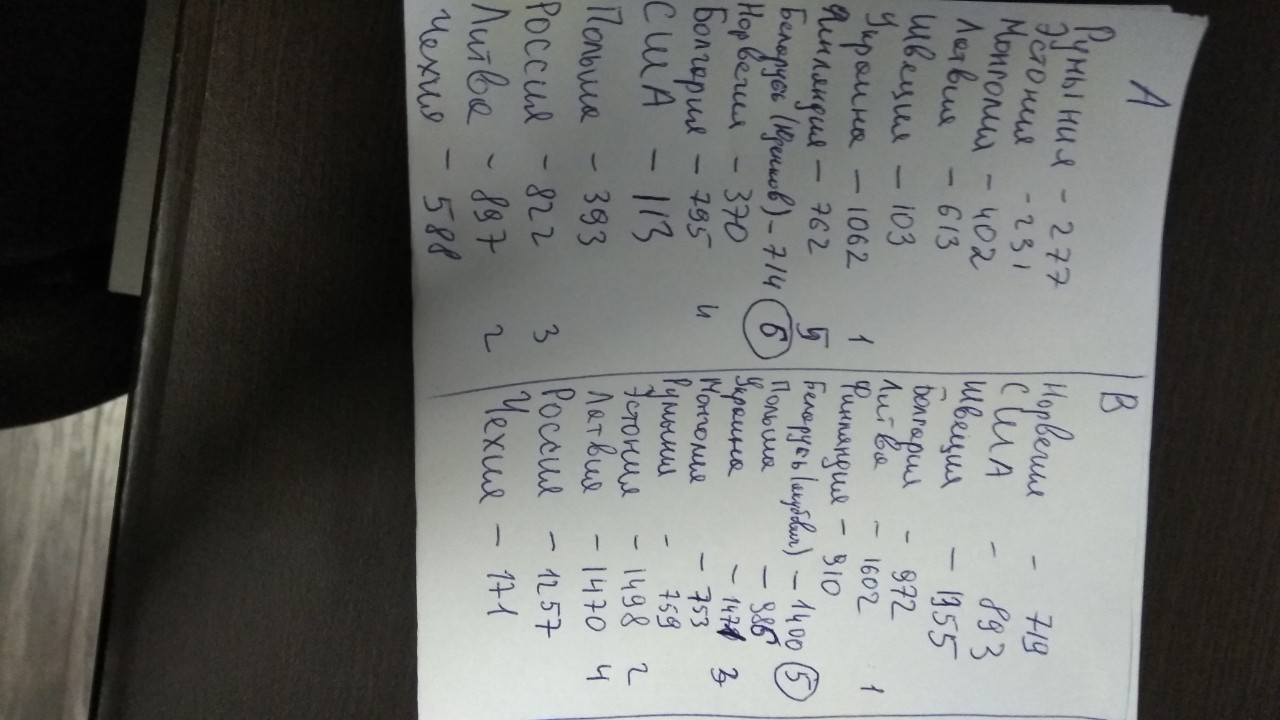 А
Румыния - 277
Эстония - 231
Монголия - 402
Латвия - 613
Швеция - 103
Украина - 1062 1
Финляндия - 762 5
Белорусь (Юренков) - 714 6
Норвегия - 370
Болгария - 795 4
США - 113
Польша - 393
Россия - 822 3
Литва - 897 2
Чехия - 588
В
Норвегия - 719
США - 893
Швеция - 1955
Болгария - 972
Литва - 1602 1
Финляндия - 910
Белорусь - 1400 5
Польша - 986
Украина - 1471 3
Монголия - 753
Румыния - 759
Эстония - 1498 2
Латвия - 1470 4
Россия - 1257
Чехия - 171